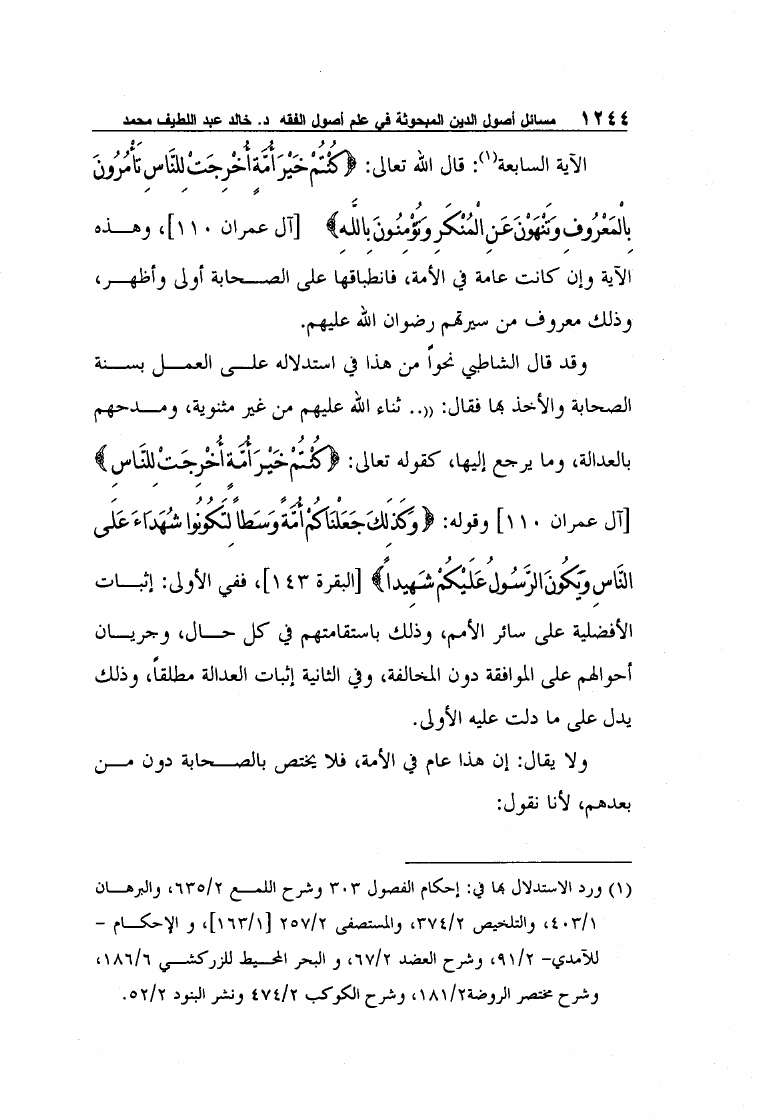 ١٢٤٤ مسائل أصول الدين المبحوثة في علم أصول الفقه د. خالد عبد اللطيف محمد
الآية السابعة(١): قال الله تعالى: ﴿كُنْتُمْ خَيْرَ أُمَّةٍ أُخْرِجَتْ لِلنَّاسِ تَأْمُرُونَ
بِالْمَعْرُوفِ وَتَنْهَوْنَ عَنِ الْمُنْكَرِ وَتُؤْمِنُونَ بِاللَّهِ﴾ [آل عمران ١١٠]، وهذه
الآية وإن كانت عامة في الأمة، فانطباقها على الصحابة أولى وأظهر،
وذلك معروف من سيرتهم رضوان الله عليهم.
وقد قال الشاطبي نحواً من هذا في استدلاله على العمل بسنة
الصحابة والأخذ بها فقال: ((.. ثناء الله عليهم من غير مثنوية، ومدحهم
بالعدالة، وما يرجع إليها، كقوله تعالى: ﴿كُنْتُمْ خَيْرَ أُمَّةٍ أُخْرِجَتْ لِلنَّاسِ﴾
[آل عمران ١١٠] وقوله: ﴿وَكَذَلِكَ جَعَلْنَاكُمْ أُمَّةً وَسَطاً لِتَكُونُوا شُهَدَاءَ عَلَى
النَّاسِ وَيَكُونَ الرَّسُولُ عَلَيْكُمْ شَهِيداً﴾ [البقرة ١٤٣]، ففي الأولى: إثبات
الأفضلية على سائر الأمم، وذلك باستقامتهم في كل حال، وجريان
أحوالهم على الموافقة دون المخالفة، وفي الثانية إثبات العدالة مطلقاً، وذلك
يدل على ما دلت عليه الأولى.
ولا يقال: إن هذا عام في الأمة، فلا يختص بالصحابة دون من
بعدهم، لأنا نقول:
(١) ورد الاستدلال بها في: إحكام الفصول ٣٠٣ وشرح اللمع ٦٣٥/٢، والبرهان
٤٠٣/١، والتلخيص ٣٧٤/٢، والمستصفى ٢٥٧/٢ [١٦٣/١]، و الإحكام –
للآمدي- ٩١/٢، وشرح العضد ٦٧/٢، و البحر المحيط للزركشي ١٨٦/٦،
وشرح مختصر الروضة١٨١/٢، وشرح الكوكب ٤٧٤/٢ ونشر البنود ٥٢/٢.